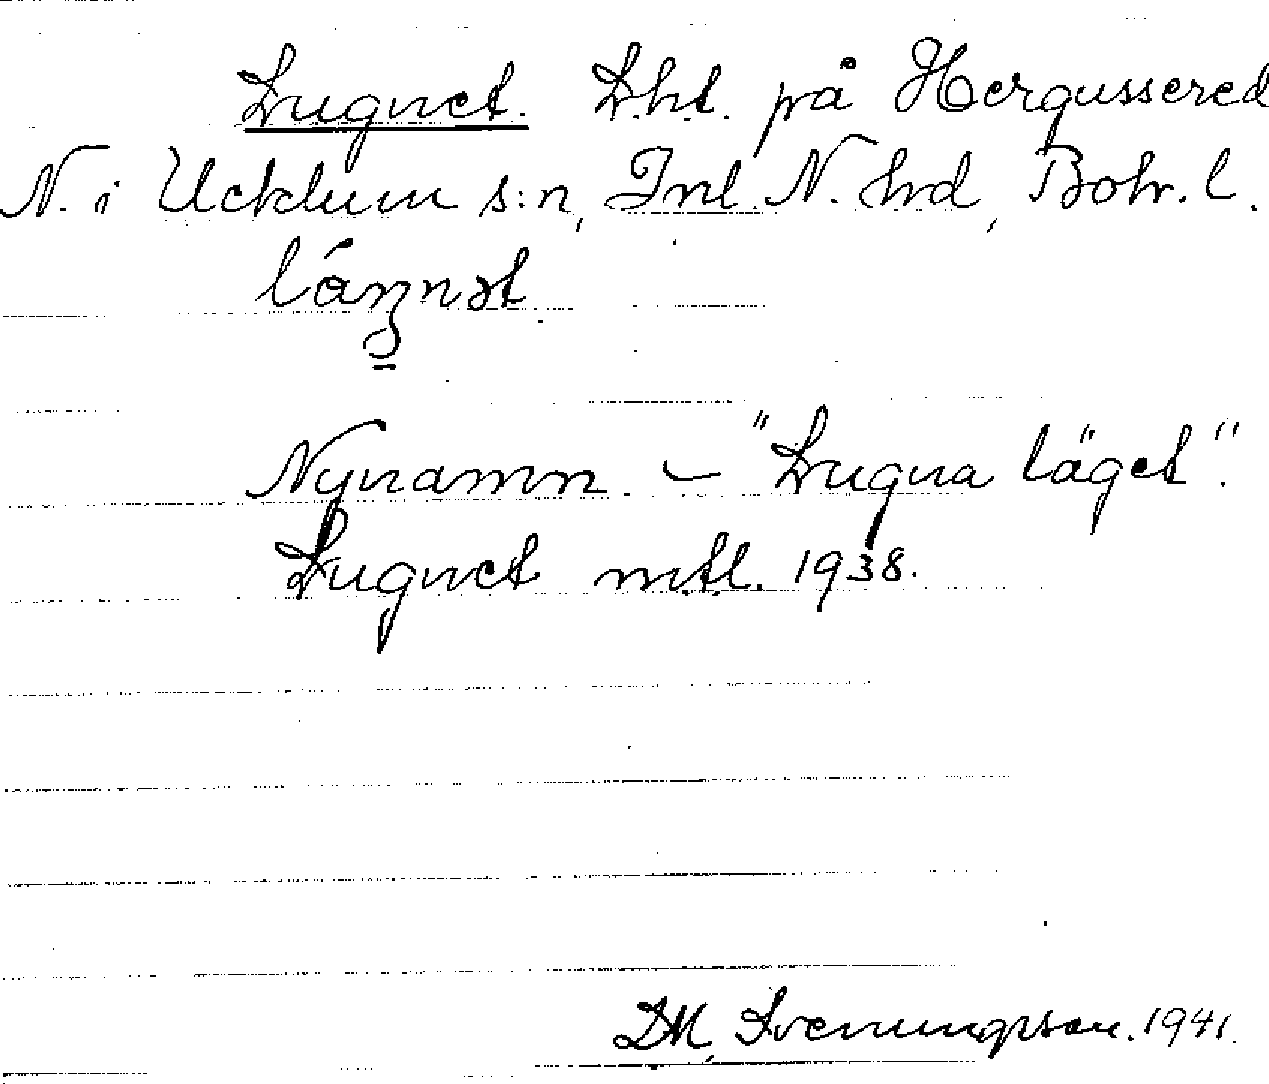 Lugnet. Lht. på Hergussered
N. i Ucklum s:n, Inl. N. hd, Bohr. l.
Nynamn – "Lugna läget".
Lugnet mtl. 1938.
D.M. Svenungsson. 1941.